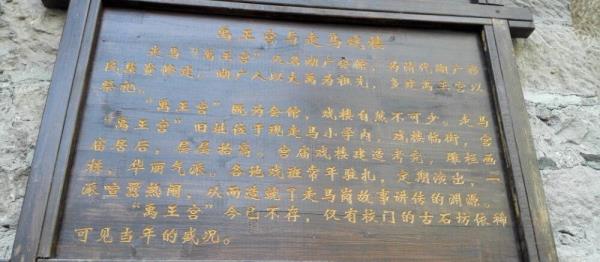 禹王宫与走马戏楼
走马“禹王宫”又名湖广会馆，为清代湖广移
民集资修建，湖广人以大禹为祖先，多建禹王宫以
祭祀。
“禹王宫”既为会馆，戏楼自然不可少。走马
“禹王宫”旧址位于现走马小学内，戏楼临街，宫
庙居后，层层拾高。宫庙戏楼建造考究，雕柱画
栋，华丽气派。各地戏班常年驻扎，定期演出，一
派喧嚣热闹，从而造就了走马岗故事讲传的渊源。
“禹王宫”今已不存，仅有校门的古石坊依稀
可见当年的盛况。